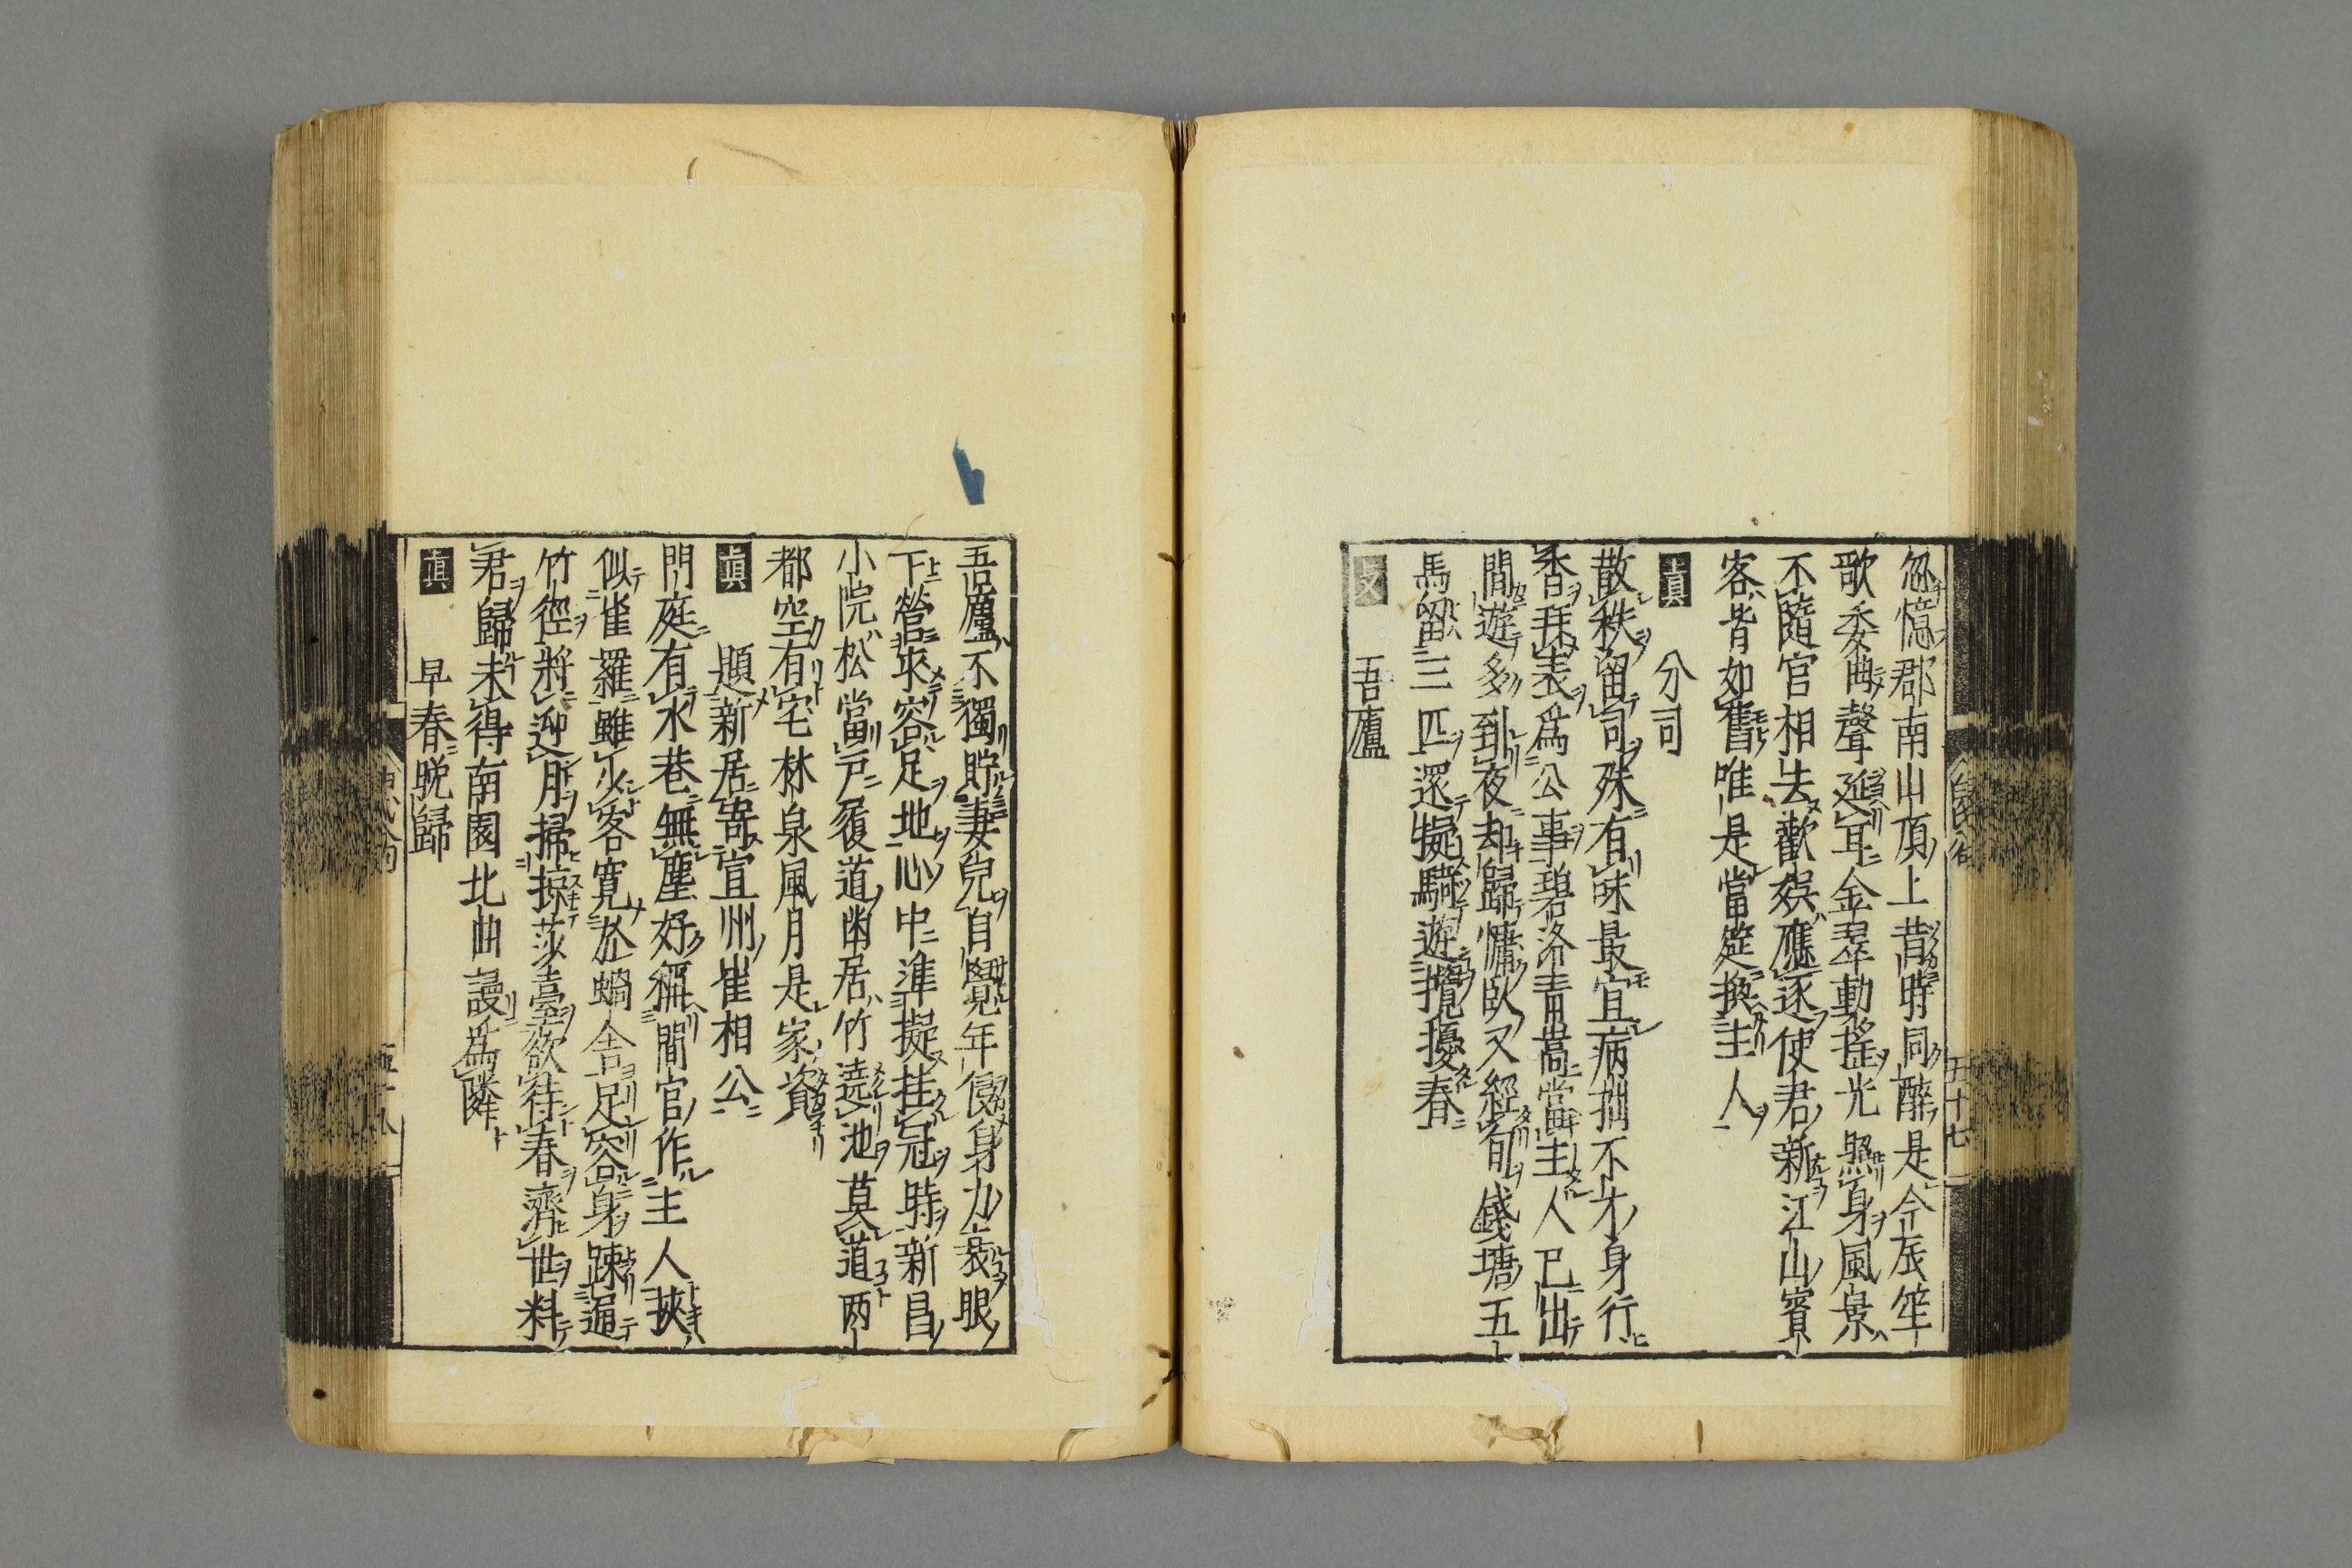 忽憶郡南山頂上昔時同醉是今辰笙
歌委曲聲延耳金翠動搖光照身風景
不隨官相去歡娱應逐使君新江山賓
客皆如舊唯是當筵換主人
眞 分司
散秩留司殊有味最宜病拙不才身行
香拜表爲公事碧洛青嵩當主人已出
閒遊多到夜却歸慵臥又經旬錢塘五
馬留三匹還擬騎遊攪擾春
吾廬
吾廬不獨貯妻兒自覺年侵身力衰眼
下營求容足地心中準擬挂冠時新昌
小院松當戶履道幽居竹遶池莫道兩
都空有宅林泉風月是家資
眞 題新居寄宣州崔相公
門庭有水巷無塵好稱閒官作主人狹
似雀羅雖少客寬於蝸舍足容身踈通
竹徑將迎月掃掠莎臺欲待春濟世料
君歸未得南園北曲謾爲隣
眞 早春晚歸
五十七